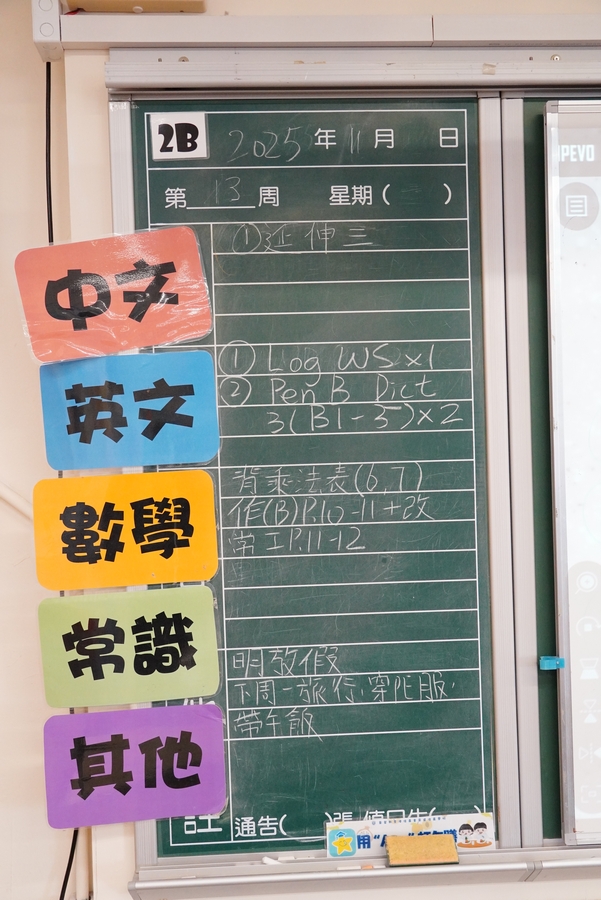 2B 2025年11月 日
第13周 星期( )
IPEVO
①延伸三
中文
①Log WS x1
②Pen B Dict
英文
3(B1-5)x2
背乘法表(6,7)
數學
作(B)P.10-11+改
學工P.11-12
常識
明放假
下周一旅行,穿P.E服,
帶午飯
其他
註 通告( )張
用